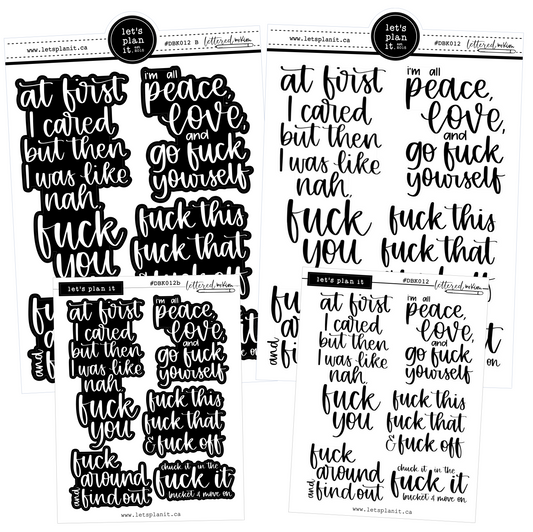 let's
plan
it.
EST. 2015
www.letsplanit.ca
#DBK012 B
lettered.mkim
at first
I cared
but then
I was like
nah.
i'm all
peace,
love,
and
go fuck
yourself
fuck
you
fuck this
fuck that
let's
plan
it.
EST. 2015
www.letsplanit.ca
#DBK012
at first
I cared
but then
I was like
nah.
i'm all
peace,
love,
and
go fuck
yourself
fuck
you
fuck this
fuck that
let's plan it
#DBK012b
at first
I cared
but then
I was like
nah.
i'm all
peace,
love,
and
go fuck
yourself
fuck
you
fuck this
fuck that
& fuck off
fuck
around
and
find out
chuck it in the
fuck it
bucket & move on
www.letsplanit.ca
let's plan it
#DBK012
at first
I cared
but then
I was like
nah.
i'm all
peace,
love,
and
go fuck
yourself
fuck
you
fuck this
fuck that
& fuck off
fuck
around
and
find out
chuck it in the
fuck it
bucket & move on
www.letsplanit.ca